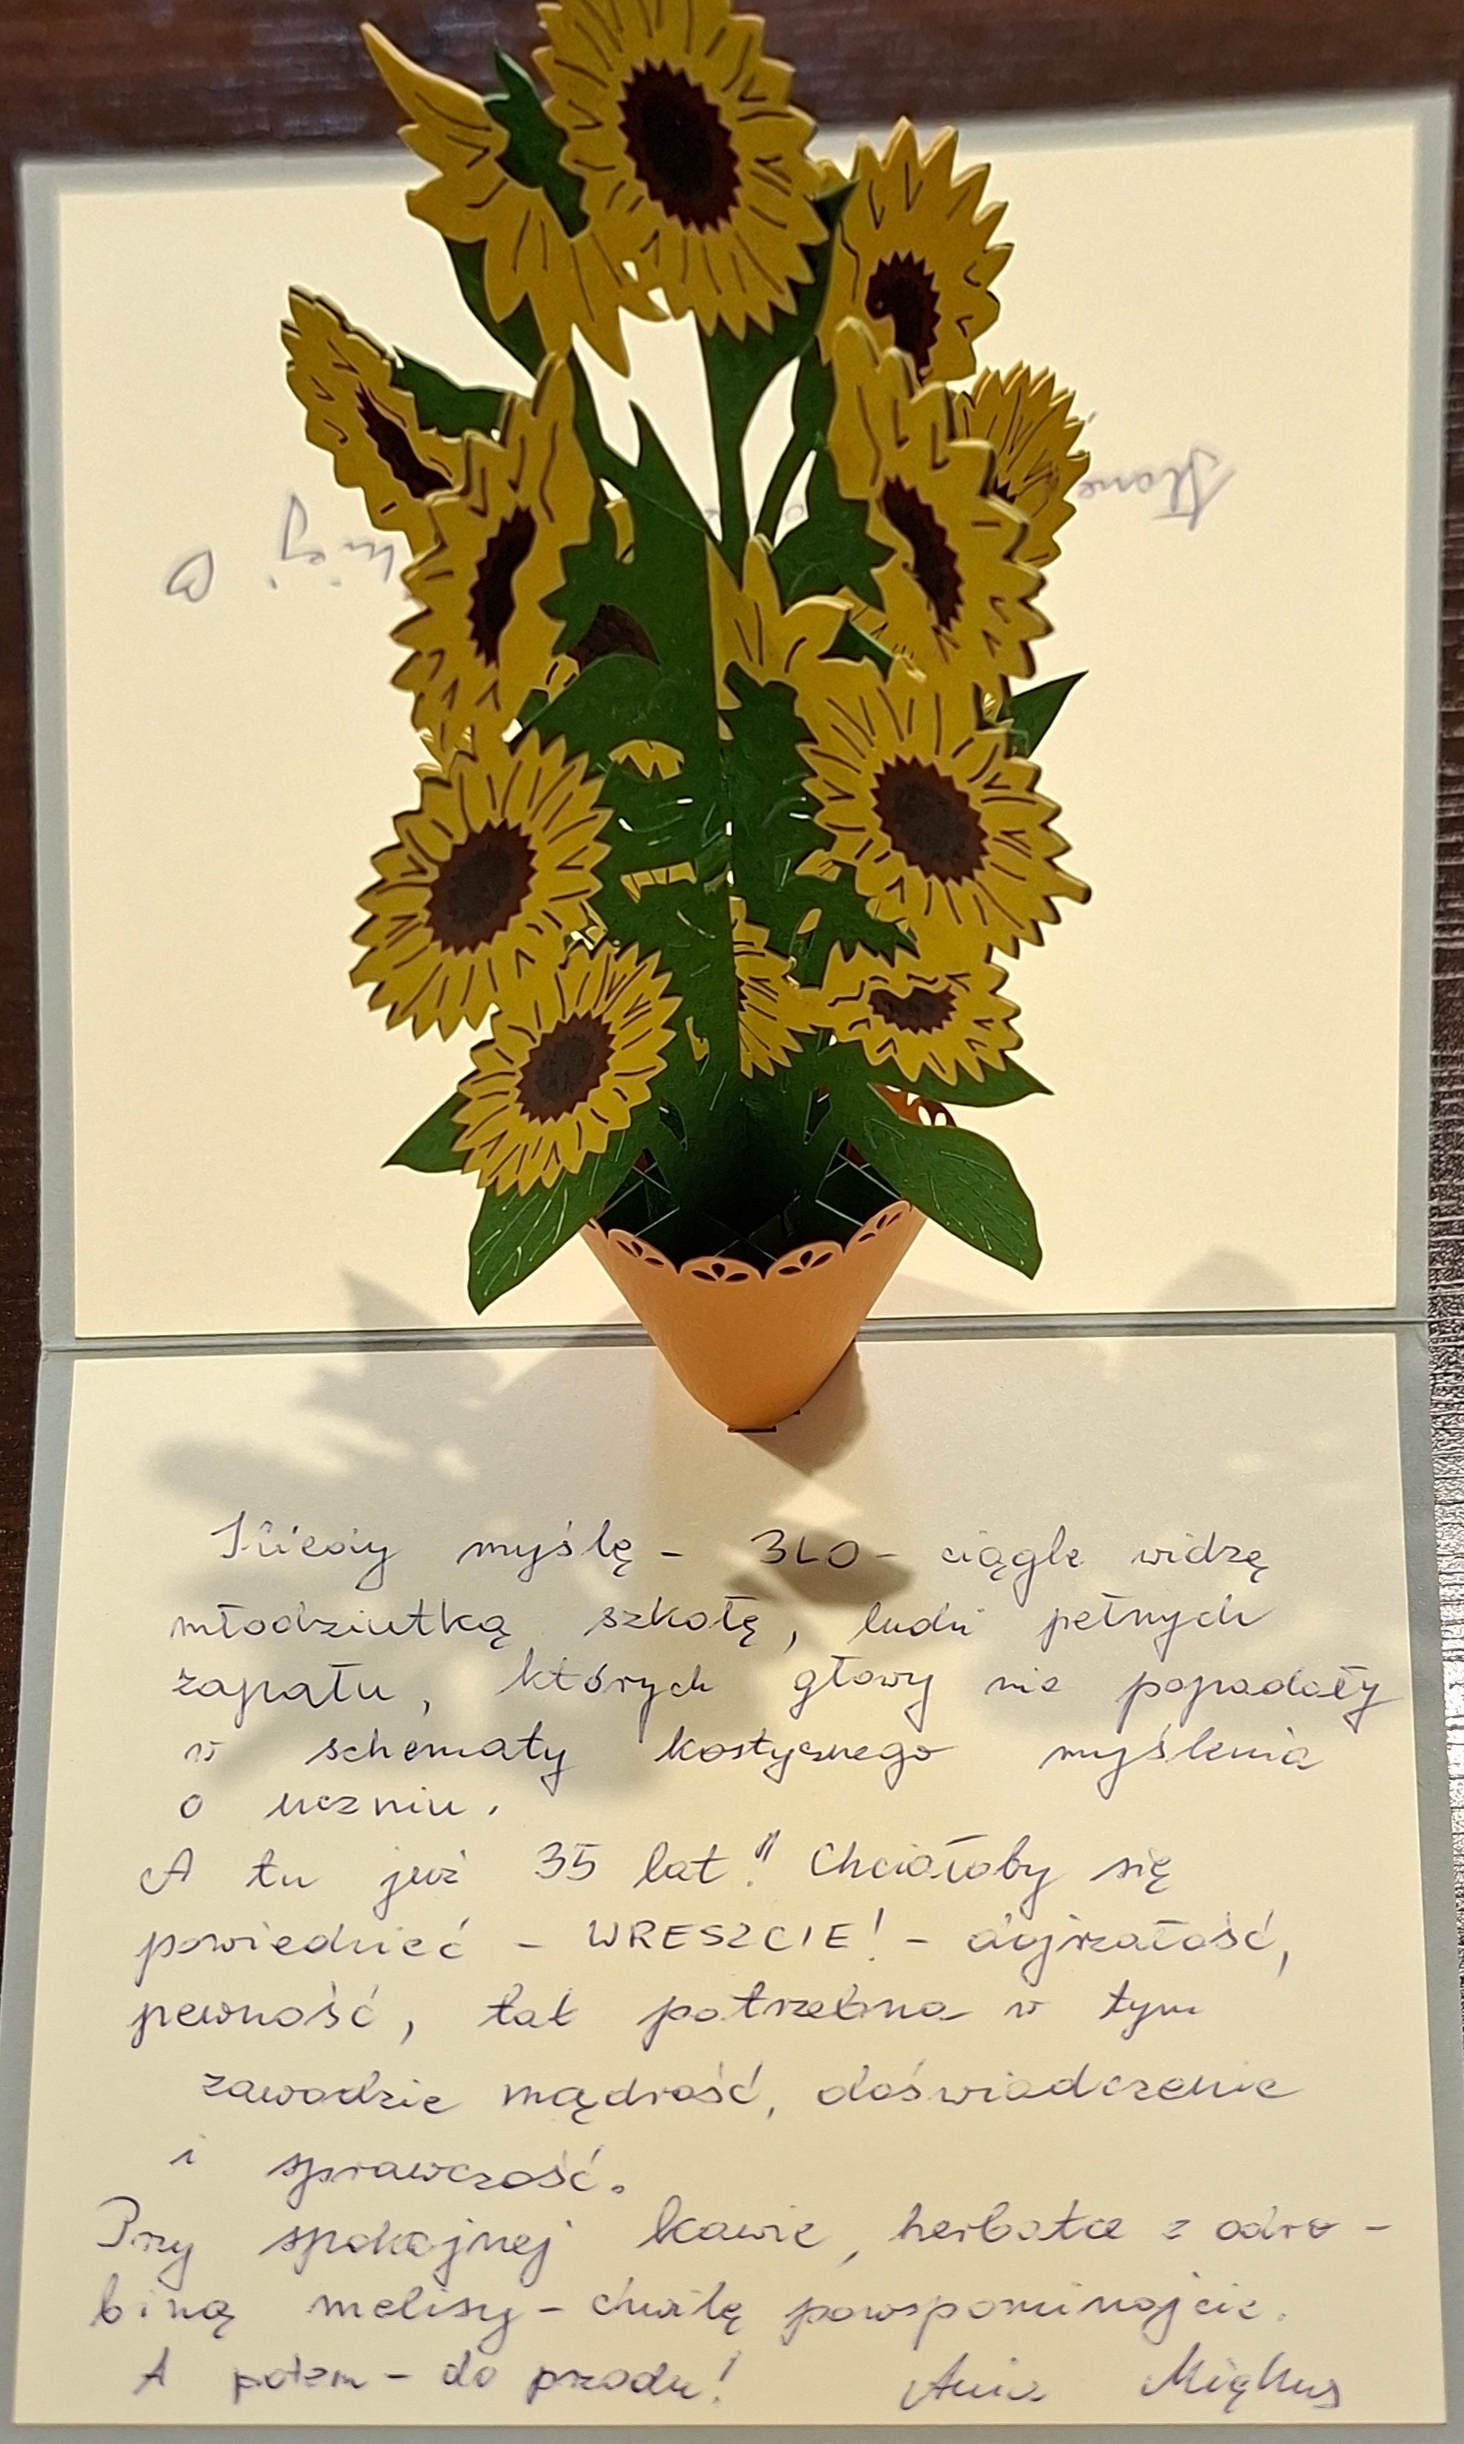 Kiedy myślę - 3LO - ciągle widzę
młodziutką szkołę, ludzi pełnych
zapału, których głowy nie popadały
w schematy kostycznego myślenia
o uczniu.
A tu już 35 lat!! Chciałoby się
powiedzieć - WRESZCIE! - dojrzałość,
pewność, tak potrzebna w tym
zawodzie mądrość, doświadczenie
i sprawczość.
Przy spokojnej kawie, herbatce z odro-
biną melisy - chwilę powspominajcie.
A potem - do przodu! Ania